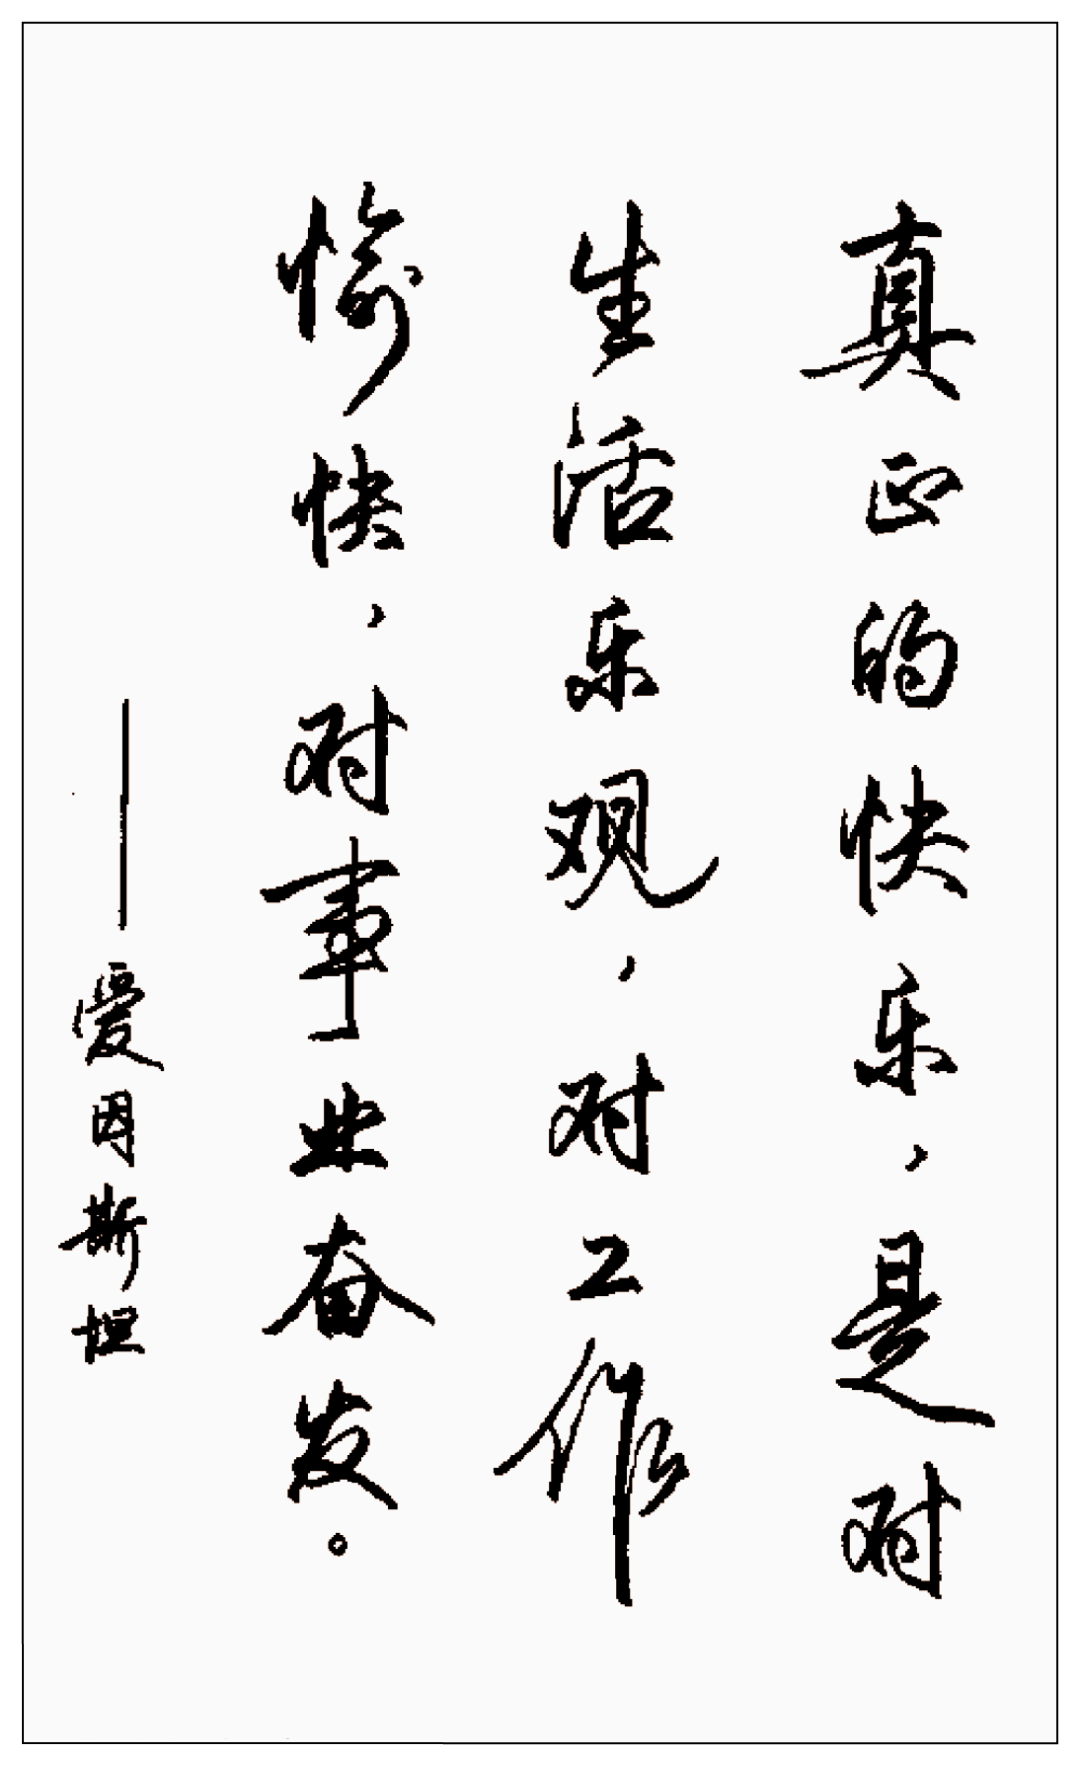 真正的快乐，是对
生活乐观，对工作
愉快，对事业奋发。
——爱因斯坦